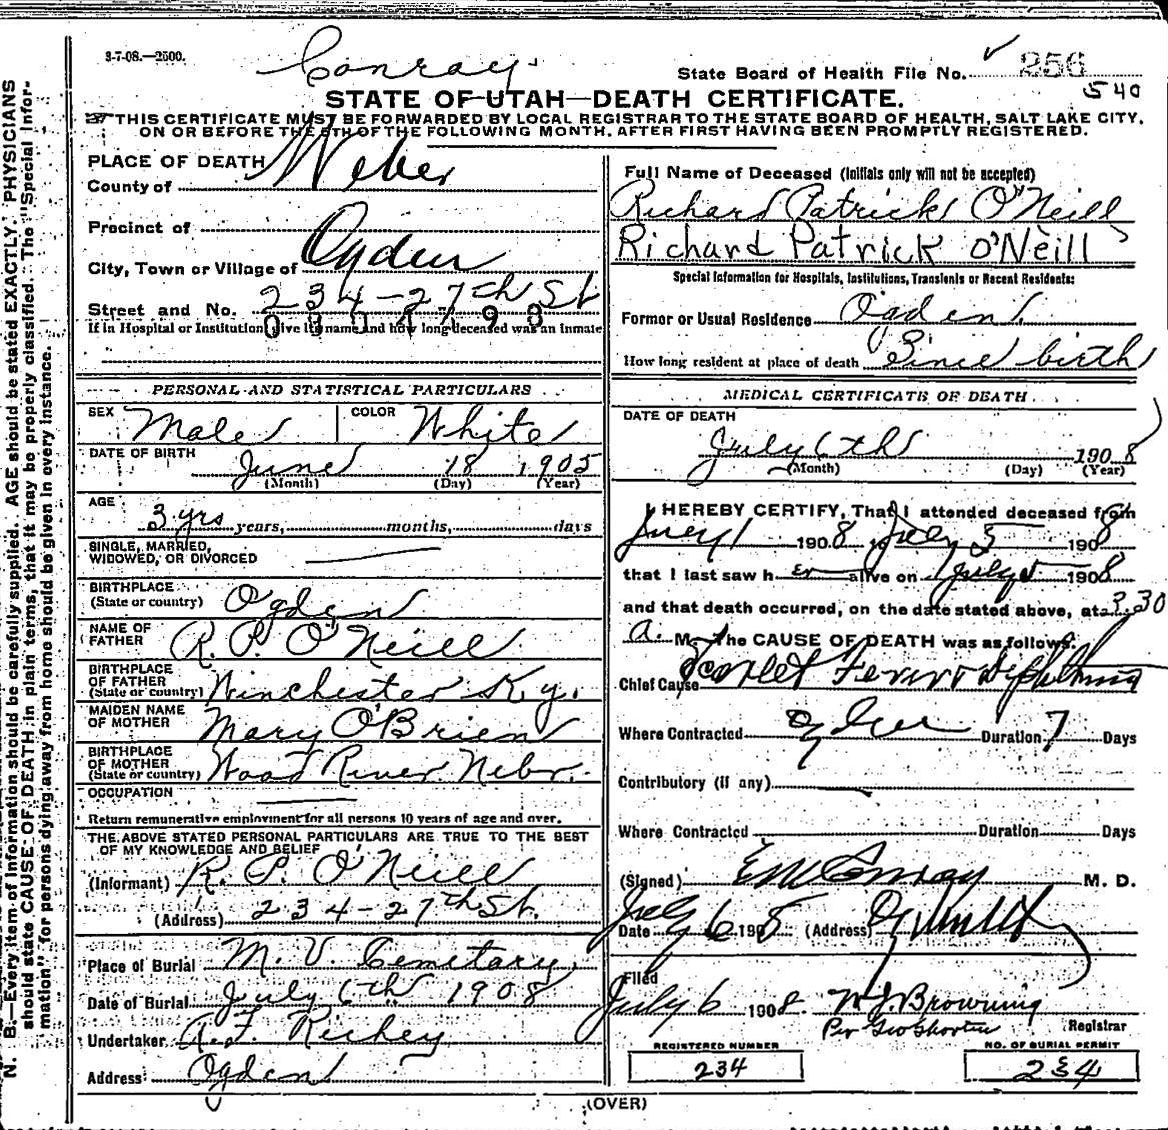 3-7-08.—2500.
Conroy
State Board of Health File No. 256
540
STATE OF UTAH—DEATH CERTIFICATE.
THIS CERTIFICATE MUST BE FORWARDED BY LOCAL REGISTRAR TO THE STATE BOARD OF HEALTH, SALT LAKE CITY,
ON OR BEFORE THE 5TH OF THE FOLLOWING MONTH, AFTER FIRST HAVING BEEN PROMPTLY REGISTERED.
N. B.—Every item of Information should be carefully supplied. AGE should be stated EXACTLY. PHYSICIANS
should state CAUSE OF DEATH in plain terms, that it may be properly classified. The "Special Infor-
mation" for persons dying away from home should be given in every instance.
PLACE OF DEATH
County of Weber
Precinct of
City, Town or Village of Ogden
Street and No. 234-27th St
If in Hospital or Institution give its name and how long deceased was an inmate
PERSONAL AND STATISTICAL PARTICULARS
SEX Male COLOR White
DATE OF BIRTH June 18 1905
(Month) (Day) (Year)
AGE 3 yrs years, months, days
SINGLE, MARRIED,
WIDOWED, OR DIVORCED
BIRTHPLACE
(State or country) Ogden
NAME OF
FATHER R. P. O'Neill
BIRTHPLACE
OF FATHER
(State or country) Winchester Ky.
MAIDEN NAME
OF MOTHER Mary O'Brien
BIRTHPLACE
OF MOTHER
(State or country) Wood River Nebr.
OCCUPATION
Return remunerative employment for all persons 10 years of age and over.
THE ABOVE STATED PERSONAL PARTICULARS ARE TRUE TO THE BEST
OF MY KNOWLEDGE AND BELIEF
(Informant) R. P. O'Neill
(Address) 234-27th St.
Place of Burial M. V. Cemetary
Date of Burial July 6th 1908
Undertaker A. F. Richey
Address Ogden
Full Name of Deceased (Initials only will not be accepted)
Richard Patrick O'Neill
Richard Patrick O'Neill
Special Information for Hospitals, Institutions, Transients or Recent Residents:
Former or Usual Residence Ogden
How long resident at place of death Since birth
MEDICAL CERTIFICATE OF DEATH
DATE OF DEATH
July 6th 1908
(Month) (Day) (Year)
I HEREBY CERTIFY, That I attended deceased from
July 1 1908, to July 5 1908
that I last saw h er alive on July 5 1908
and that death occurred, on the date stated above, at 3.30
a. M. The CAUSE OF DEATH was as follows:
Chief Cause Scarlet Fever & Diphtheria
Where Contracted Ogden Duration 7 Days
Contributory (if any)
Where Contracted Duration Days
(Signed) E M Conroy M. D.
Date July 6 1908 (Address) Ogden Utah
Filed
July 6 1908. W J Browning
Per Geo Shorten Registrar
REGISTERED NUMBER
234
NO. OF BURIAL PERMIT
234
(OVER)